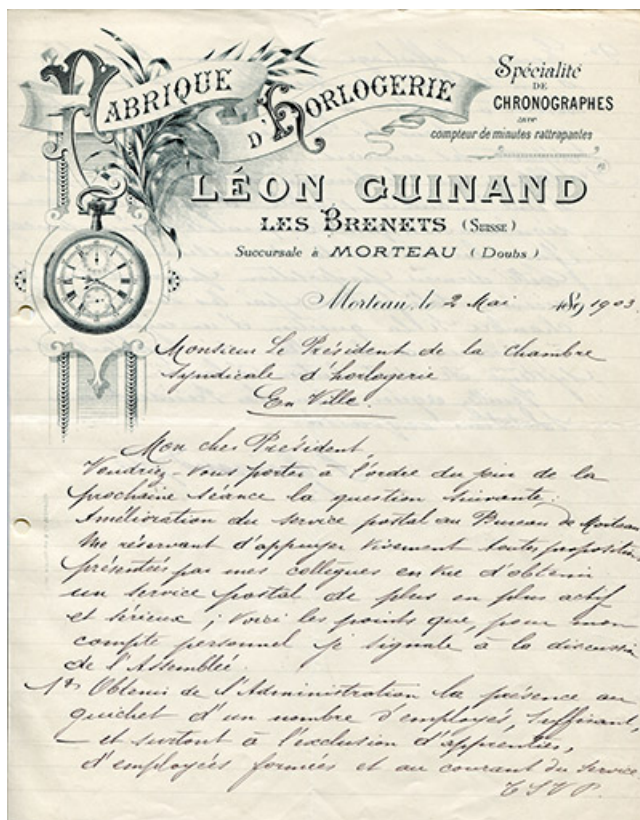 FABRIQUE
D'HORLOGERIE
Spécialité
DE
CHRONOGRAPHES
avec
compteur de minutes rattrapantes
LÉON GUINAND
LES BRENETS (SUISSE)
Succursale à MORTEAU (Doubs)
Morteau, le 2 Mai 1903
Monsieur Le Président de la chambre
syndicale d'horlogerie
En Ville.
Mon cher Président,
Voudriez-vous porter à l'ordre du jour de la
prochaine séance la question suivante:
Amélioration du service postal au Bureau de Morteau
Me réservant d'appuyer vivement toutes propositions
présentées par mes collègues en vue d'obtenir
un service postal de plus en plus actif
et sérieux; voici les points que, pour mon
compte personnel je signale à la discussion
de l'Assemblée.
1º Obtenir de l'Administration la présence au
guichet d'un nombre d'employés, suffisant,
— et surtout à l'exclusion d'apprenties,
d'employées formées et au courant du service.
T.S.V.P.